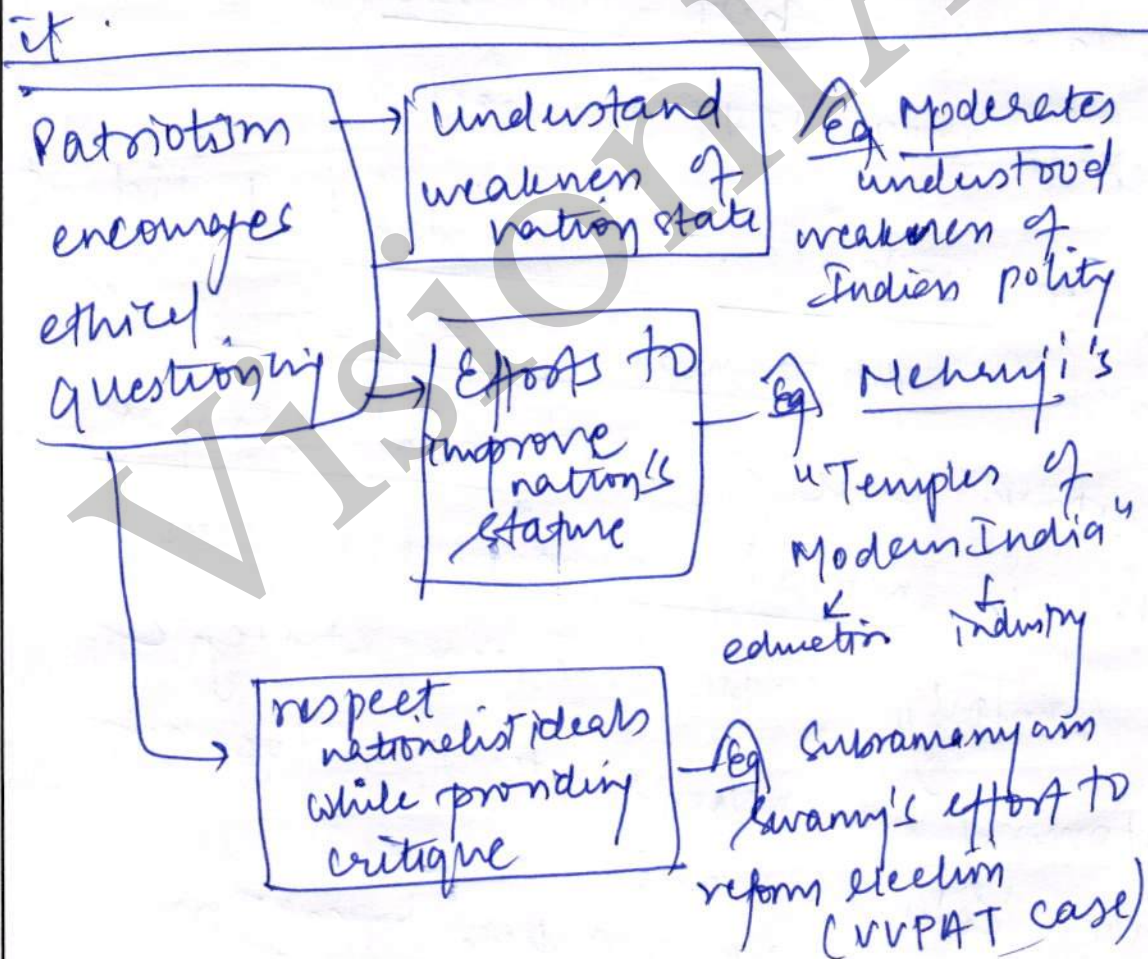 it.
Patriotism
encourages
ethical
questioning
Understand
weakness of
nation state
Eg Moderates
understood
weakness of
Indian polity
Efforts to
improve
nation's
stature
Eg Nehruji's
"Temples of
Modern India"
education industry
respect
nationalist ideals
while providing
critique
Eg Subramanyam
Swamy's effort to
reform election
(VVPAT case)
Vision